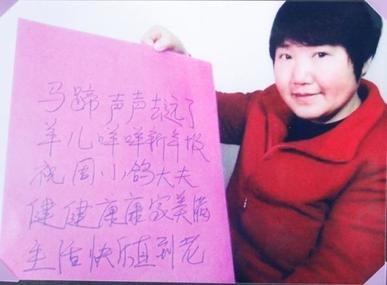 马蹄声声去远了
羊儿咩咩新年报
祝周小鸽大夫
健健康康家美满
生活快乐直到老